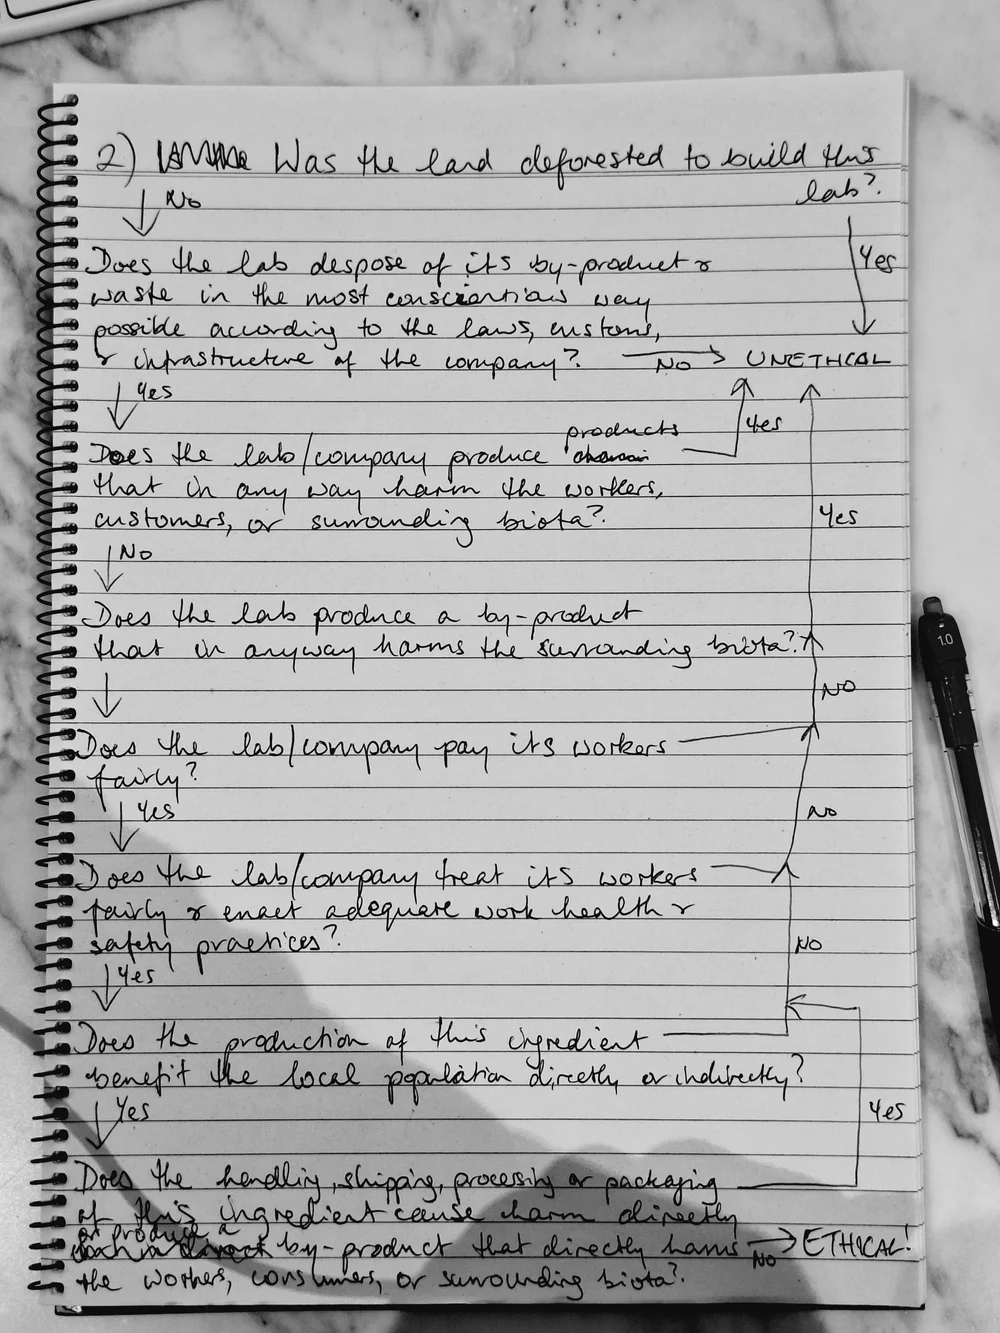 2) Was the land deforested to build this
lab?
No
Yes
Does the lab despose of its by-product &
waste in the most conscientious way
possible according to the laws, customs,
& infrastructure of the company?
No
UNETHICAL
Yes
Yes
products
Does the lab/company produce
that in any way harm the workers,
customers, or surrounding biota?
Yes
No
Does the lab produce a by-product
that in anyway harms the surrounding biota?
1.0
No
Does the lab/company pay its workers
fairly?
Yes
No
Does the lab/company treat its workers
fairly & enact adequate work health &
safety practices?
No
Yes
Does the production of this ingredient
benefit the local population directly or indirectly?
Yes
Yes
Does the handling, shipping, processing or packaging
of this ingredient cause harm directly
or produce a
by-product that directly harms
No
ETHICAL!
the workers, consumers, or surrounding biota?